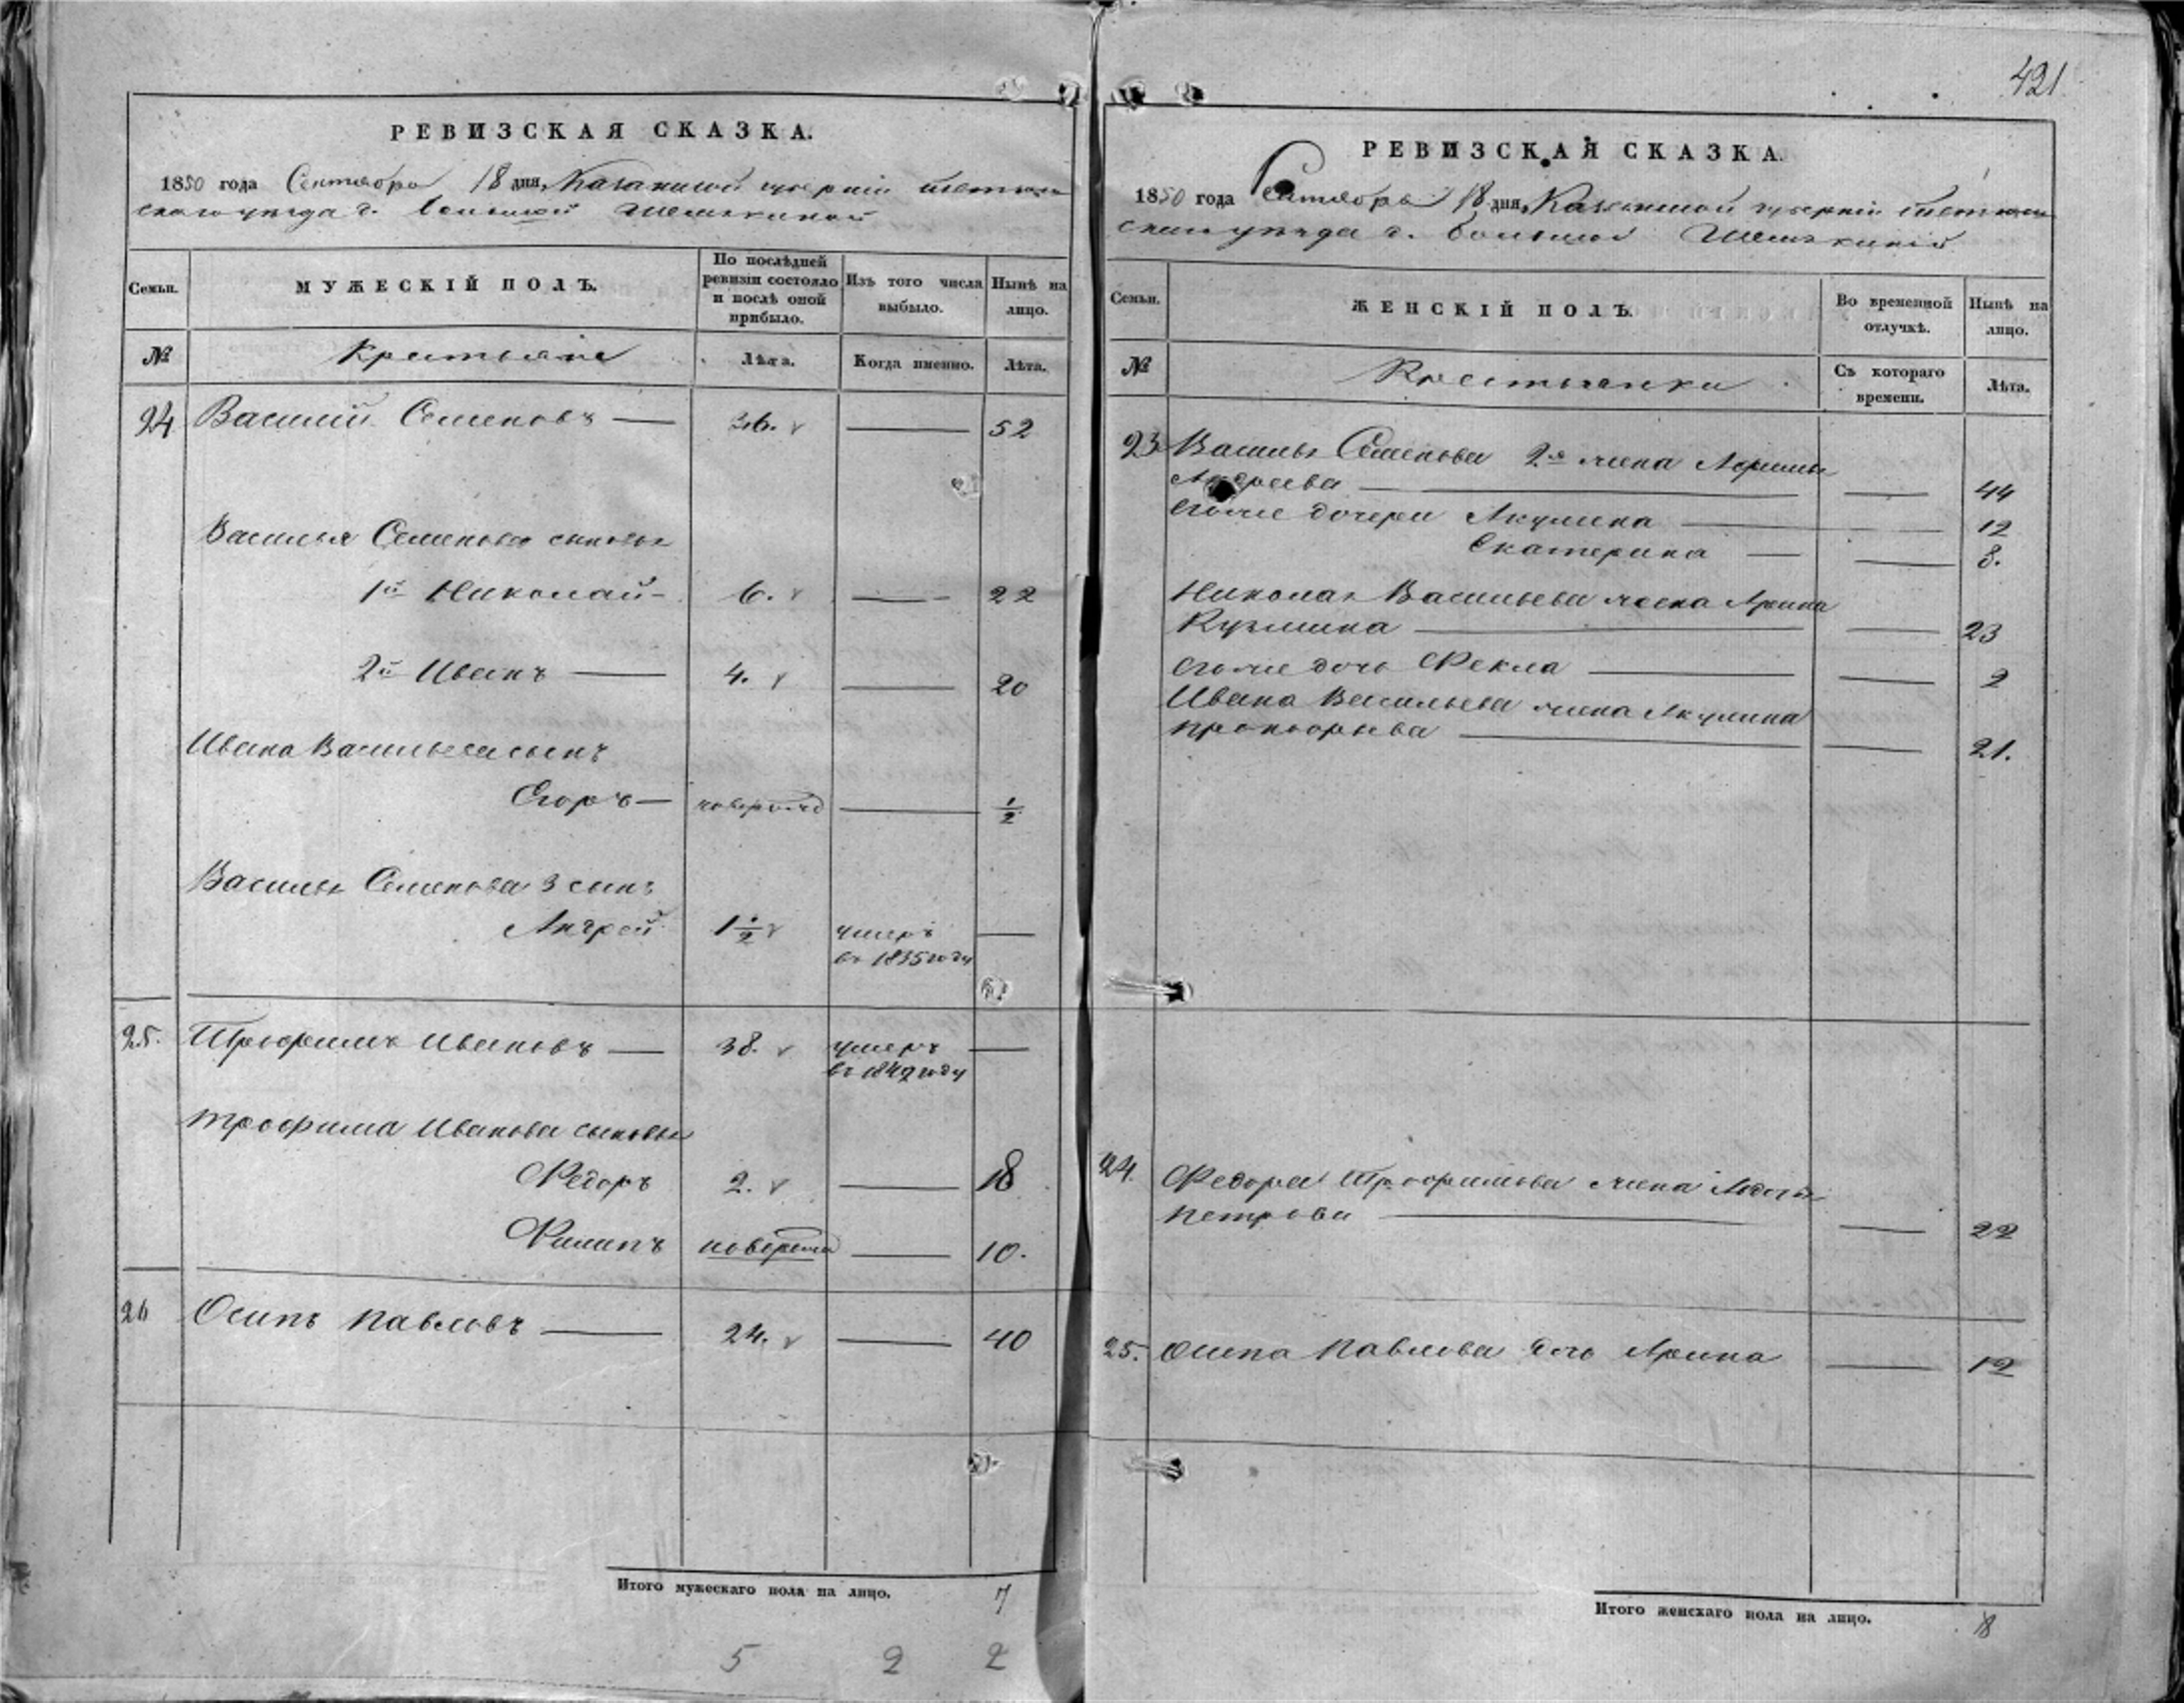 421
РЕВИЗСКАЯ СКАЗКА.
1850 года Сентября 18 дня, Казанской губерніи
скаго уѣзда д. Большой
Семьи.
МУЖЕСКІЙ ПОЛЪ.
По послѣдней ревизіи состояло и послѣ оной прибыло.
Изъ того числа выбыло.
Нынѣ на лицо.
№
Крестьяне
Лѣта.
Когда именно.
Лѣта.
24 Василий Семеновъ — 36. — 52
Василья Семенова сыновья
1й Николай — 6. — 22
2й Иванъ — 4. — 20
Ивана Васильева сынъ
Егоръ — — 1/2
Василья Семенова 3 сынъ
Андрей 1 1/2 умеръ —
въ 1835 году
25. Трофимъ Ивановъ — 38. умеръ —
въ 1849 году
Трофима Иванова сыновья
Федоръ 2. — 18
Филипъ — 10.
26 Осипъ Павловъ — 24. — 40
Итого мужескаго пола на лицо. 7
5 2 2
РЕВИЗСКАЯ СКАЗКА.
1850 года Сентября 18 дня, Казанской губерніи
скаго уѣзда д. Большой
Семьи.
ЖЕНСКІЙ ПОЛЪ.
Во временной отлучкѣ.
Нынѣ на лицо.
№
Крестьянки
Съ котораго времени.
Лѣта.
23 Василья Семенова 2я жена
Андреева — — 44
его же дочери Акулина — — 12
Екатерина — — 8.
Николая Васильева жена Арина
Кузмина — — 23
его же дочь Фекла — — 2
Ивана Васильева жена Акулина
Прокофьева — — 21.
24. Федора Трофимова жена Авдотья
Петрова — — 22
25. Осипа Павлова дочь Арина — 12
Итого женскаго пола на лицо. 8